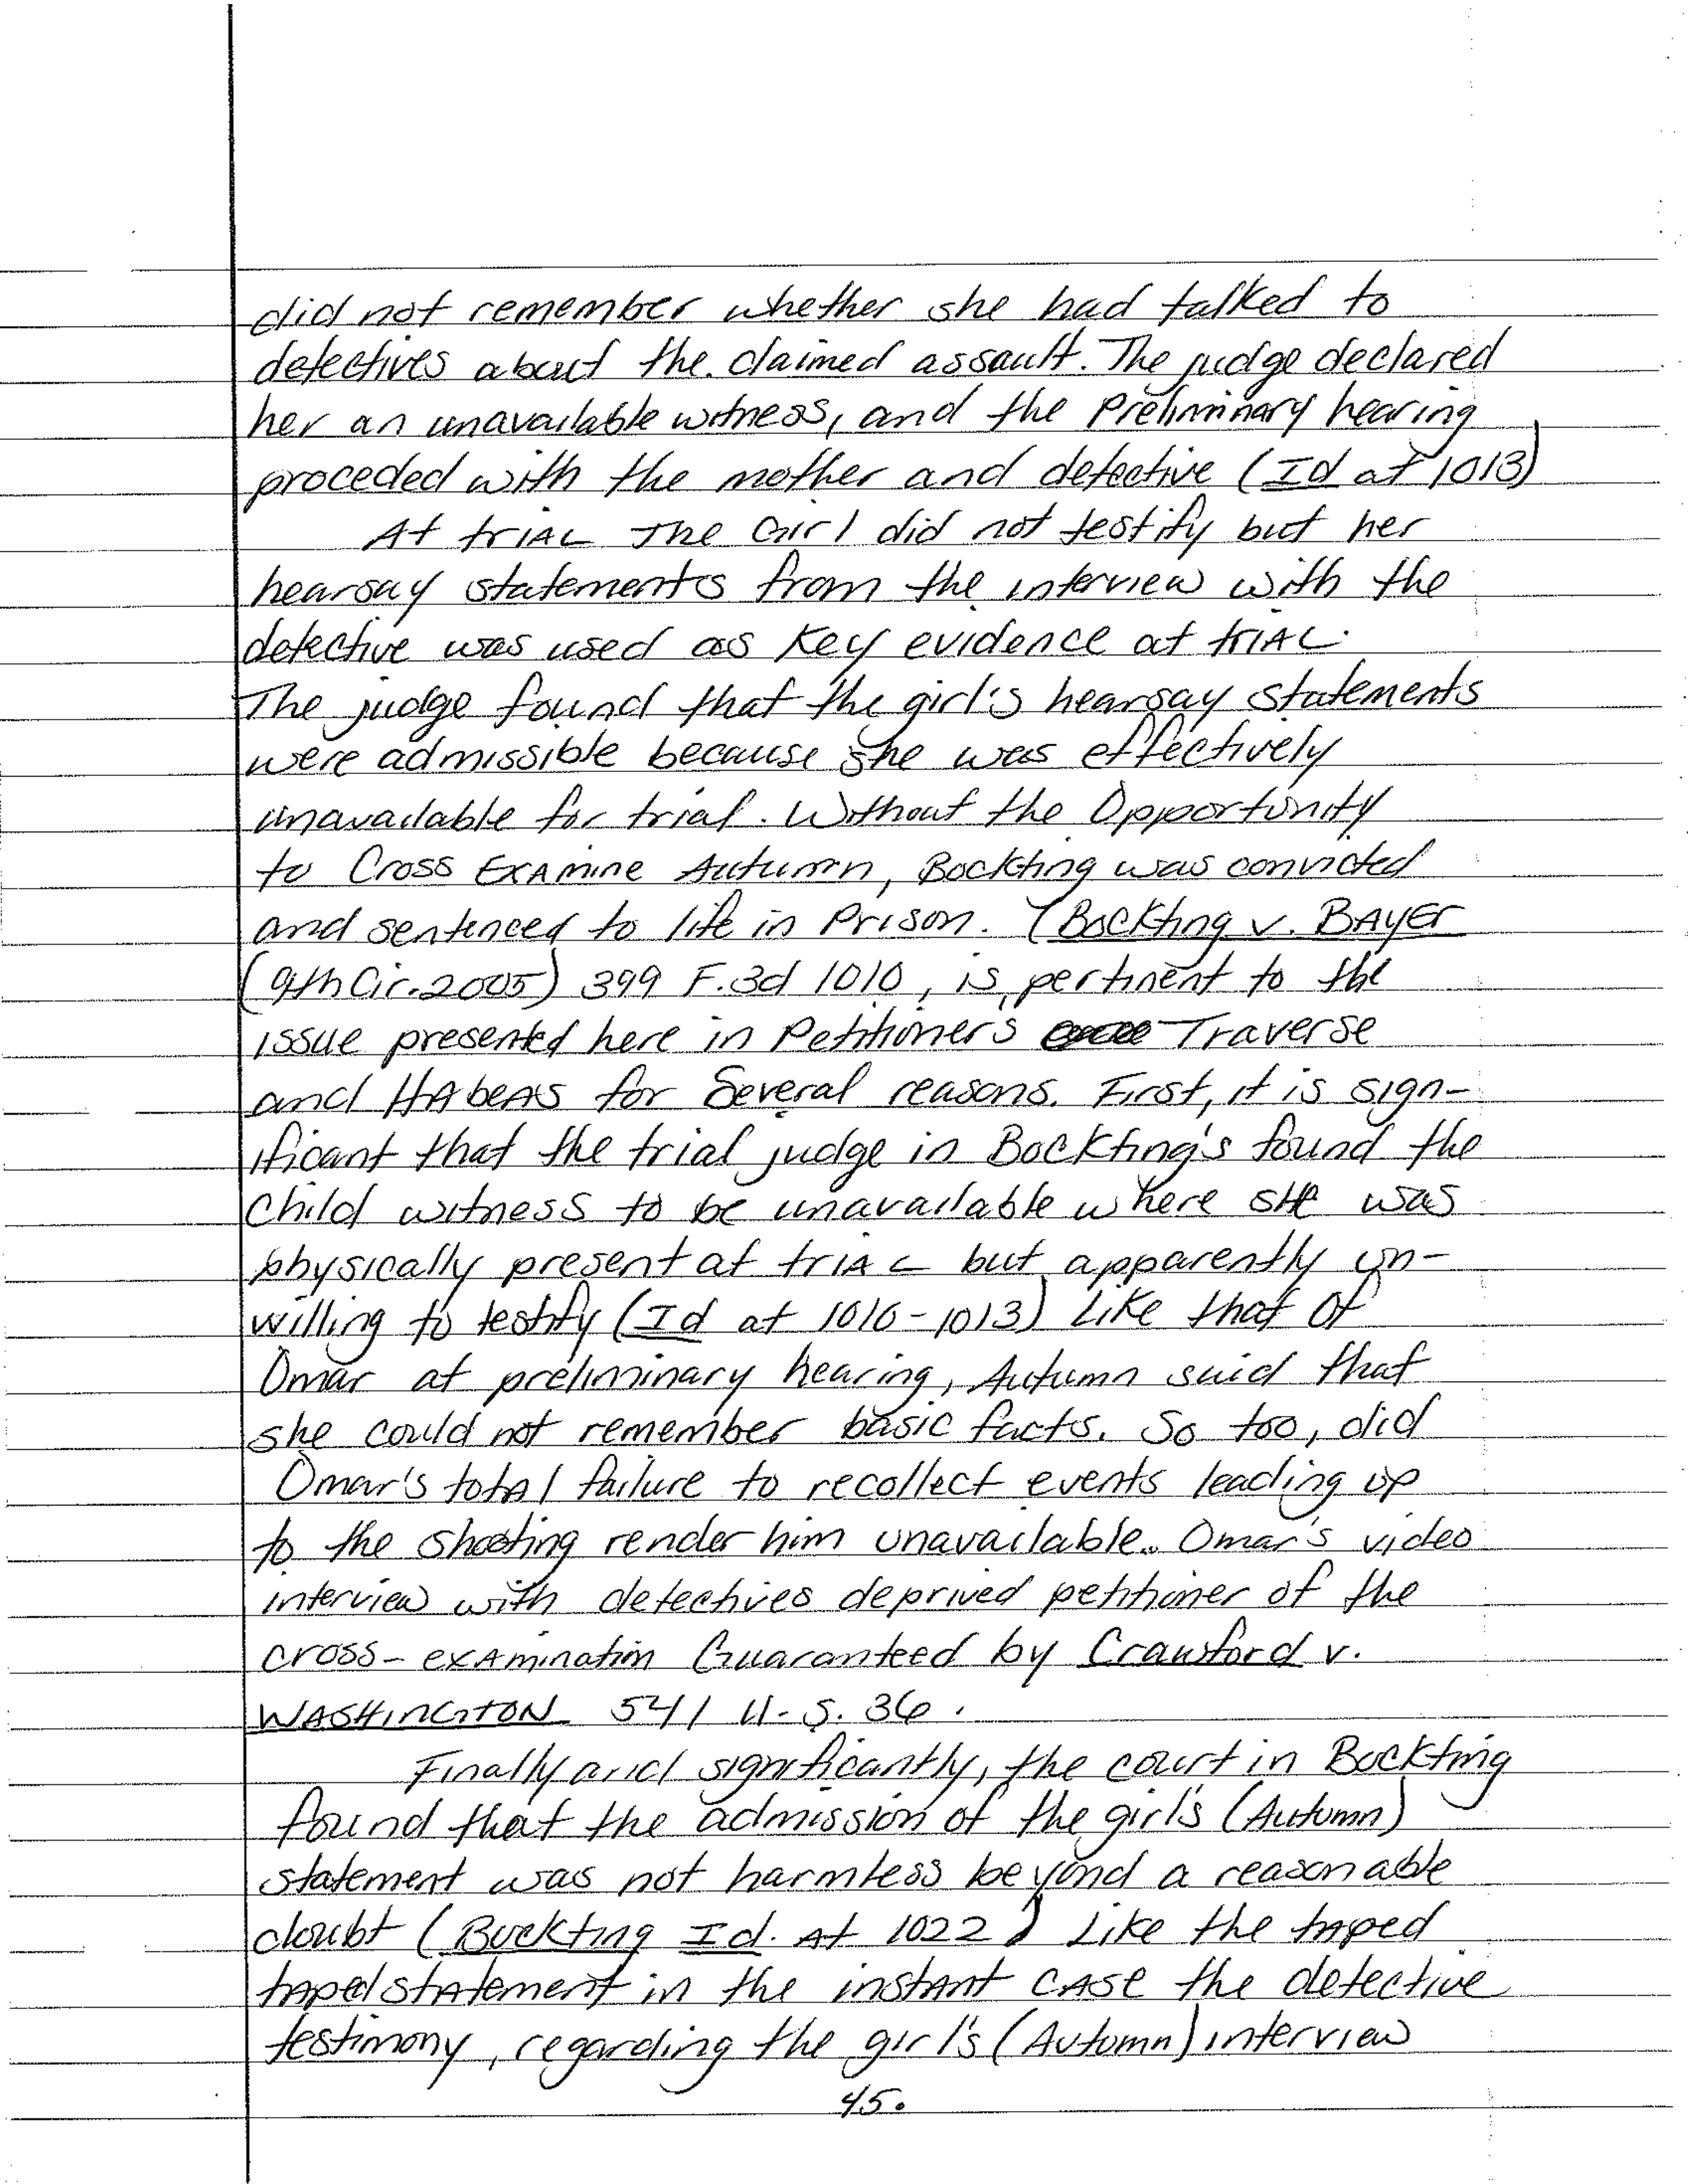 did not remember whether she had talked to
detectives about the claimed assault. The judge declared
her an unavailable witness, and the Preliminary hearing
proceded with the mother and detective (Id at 1013)
At triAL The Girl did not testify but her
hearsay statements from the interview with the
detective was used as Key evidence at triAL.
The judge found that the girl's hearsay statements
were admissible because she was effectively
unavailable for trial. Without the Opportunity
to Cross ExAmine Autumn, Bockting was convicted
and sentenced to life in Prison. (Bockting v. BAyEr
(9th Cir. 2005) 399 F.3d 1010, is pertinent to the
issue presented here in Petitioner's Traverse
and HAbeAs for Several reasons. First, it is sign-
ificant that the trial judge in Bockting's found the
Child witness to be unavailable where sHe was
physically present at triAL but apparently un-
willing to testify (Id at 1010-1013) Like that of
Omar at preliminary hearing, Autumn said that
she could not remember basic facts. So too, did
Omar's totAl failure to recollect events leading up
to the shooting render him unavailable. Omar's video
interview with detectives deprived petitioner of the
cross-exAmination Guaranteed by Crawford v.
WASHINGTON 541 U.S. 36.
Finally and significantly, the court in Bockting
found that the admission of the girl's (Autumn)
statement was not harmless beyond a reasonable
doubt (Bockting Id. At 1022) Like the tAped
tAped stAtement in the instAnt CASE the detective
testimony, regarding the girl's (Autumn) interview
45.